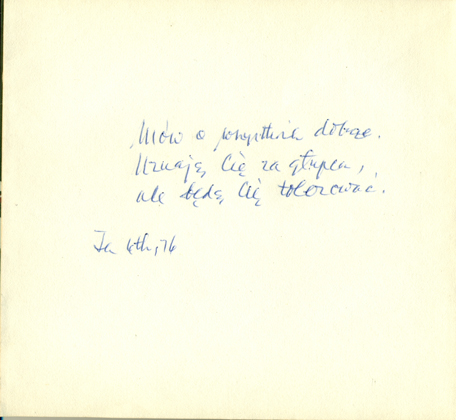 „Mów o wszystkich dobrze.
Uznają Cię za głupca,
ale będą Cię tolerować.
4th, 76